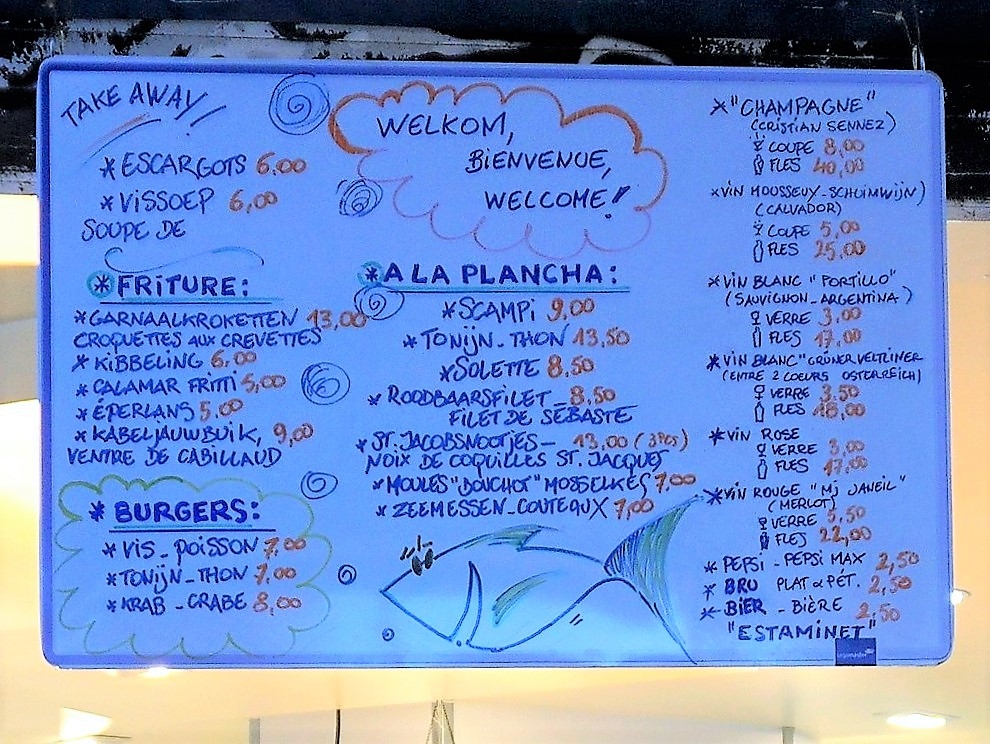 TAKE AWAY!
* ESCARGOTS 6.00
* VISSOEP 6,00
SOUPE DE
WELKOM,
BIENVENUE,
WELCOME!
* FRITURE:
* GARNAALKROKETTEN 13,00
CROQUETTES AUX CREVETTES
* KIBBELING 6,00
* CALAMAR FRITTI 5,00
* ÉPERLANS 5.00
* KABELJAUWBUIK, 9,00
VENTRE DE CABILLAUD
* BURGERS:
* VIS - POISSON 7.00
* TONIJN - THON 7.00
* KRAB - CRABE 8,00
* A LA PLANCHA:
* SCAMPI 9,00
* TONIJN - THON 13,50
* SOLETTE 8.50
* ROODBAARSFILET - 8.50
FILET DE SÉBASTE
* ST. JACOBSNOOTJES - 13,00 (3PCS)
NOIX DE COQUILLES ST. JACQUES
* MOULES "BOUCHOT" MOSSELKES 7.00
* ZEEMESSEN - COUTEAUX 7,00
* "CHAMPAGNE"
(CRISTIAN SENNEZ)
COUPE 8,00
FLES 40,00
* VIN MOUSSEUX - SCHUIMWIJN)
(CALVADOR)
COUPE 5,00
FLES 25,00
* VIN BLANC "PORTILLO"
(SAUVIGNON - ARGENTINA)
VERRE 3,00
FLES 17,00
* VIN BLANC "GRÜNER VELTLINER
(ENTRE 2 COEURS OSTERREICH)
VERRE 3.50
FLES 18,00
* VIN ROSE
VERRE 3,00
FLES 17,00
* VIN ROUGE "MJ JANEIL"
(MERLOT)
VERRE 3,50
FLES 22,00
* PEPSI - PEPSI MAX 2,50
* BRU PLAT & PÉT. 2,50
* BIER - BIÈRE 2,50
"ESTAMINET"